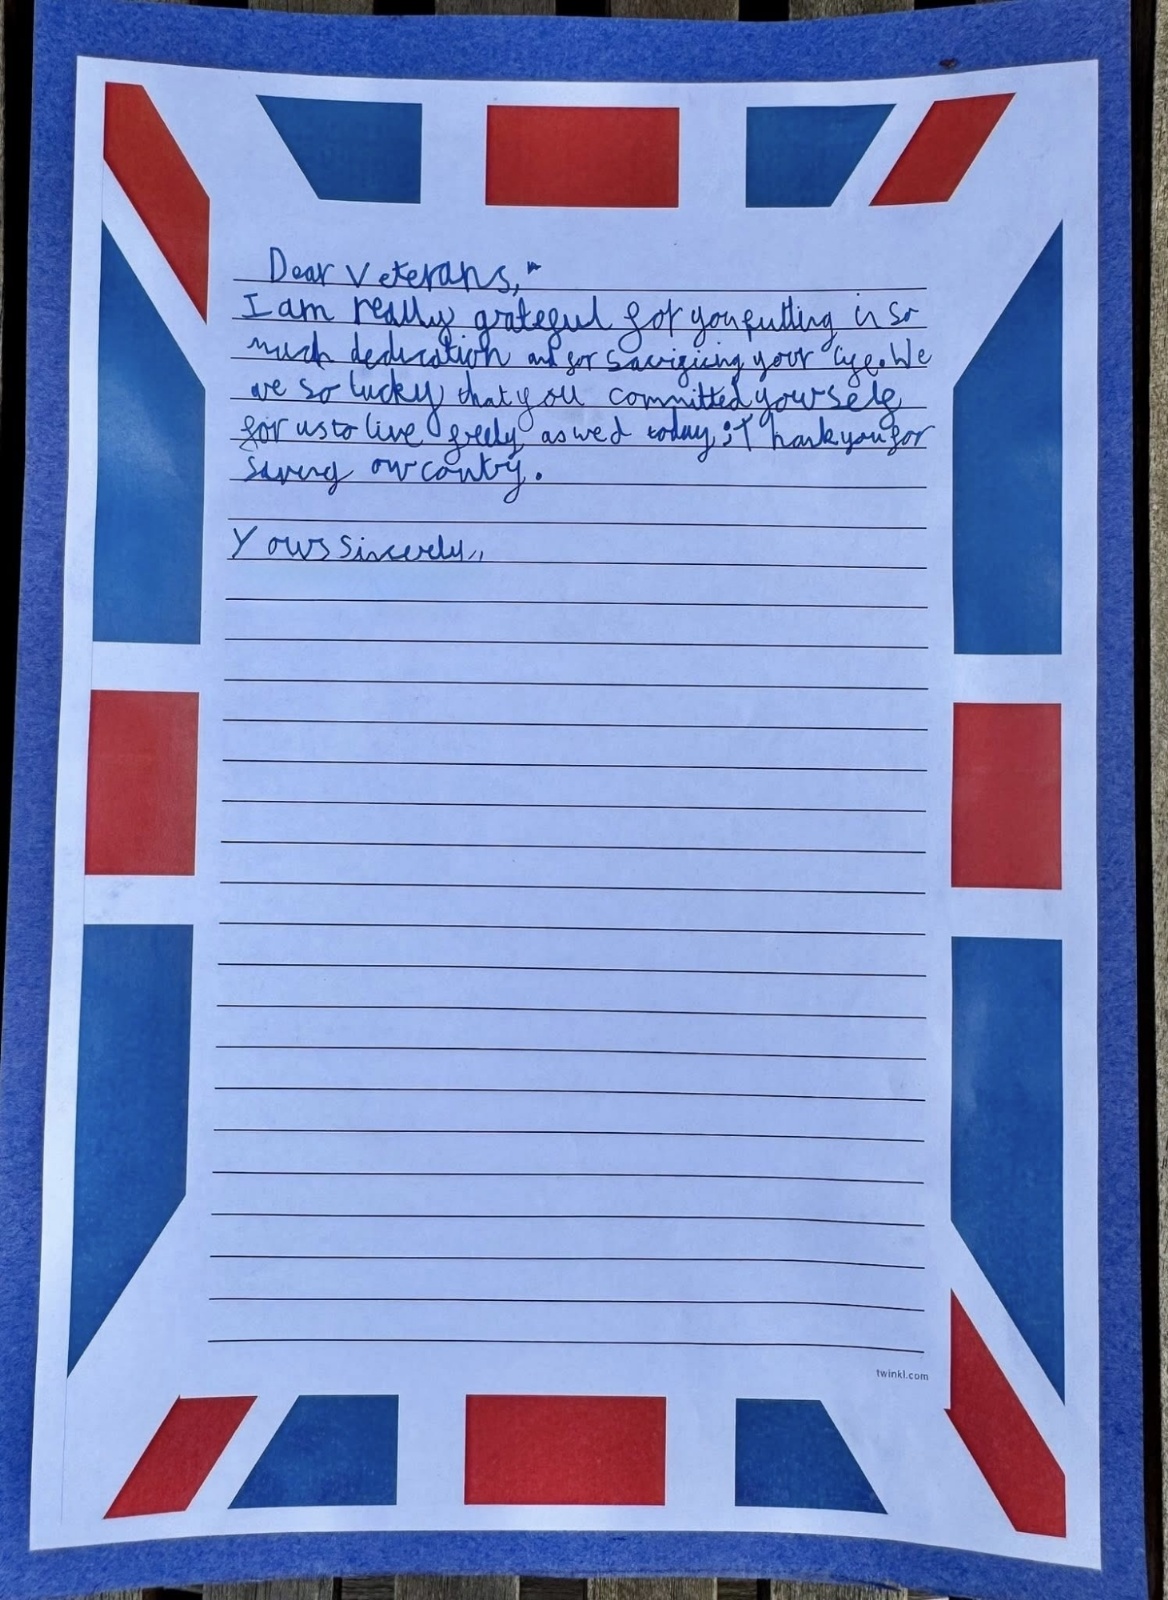 Dear Veterans,
I am really grateful for you putting in so
much dedication and for sacrificing your life. We
are so lucky that you committed yourself
for us to live freely as we d today; Thank you for
saving our contry.
Yours Sincerely,,
twinkl.com